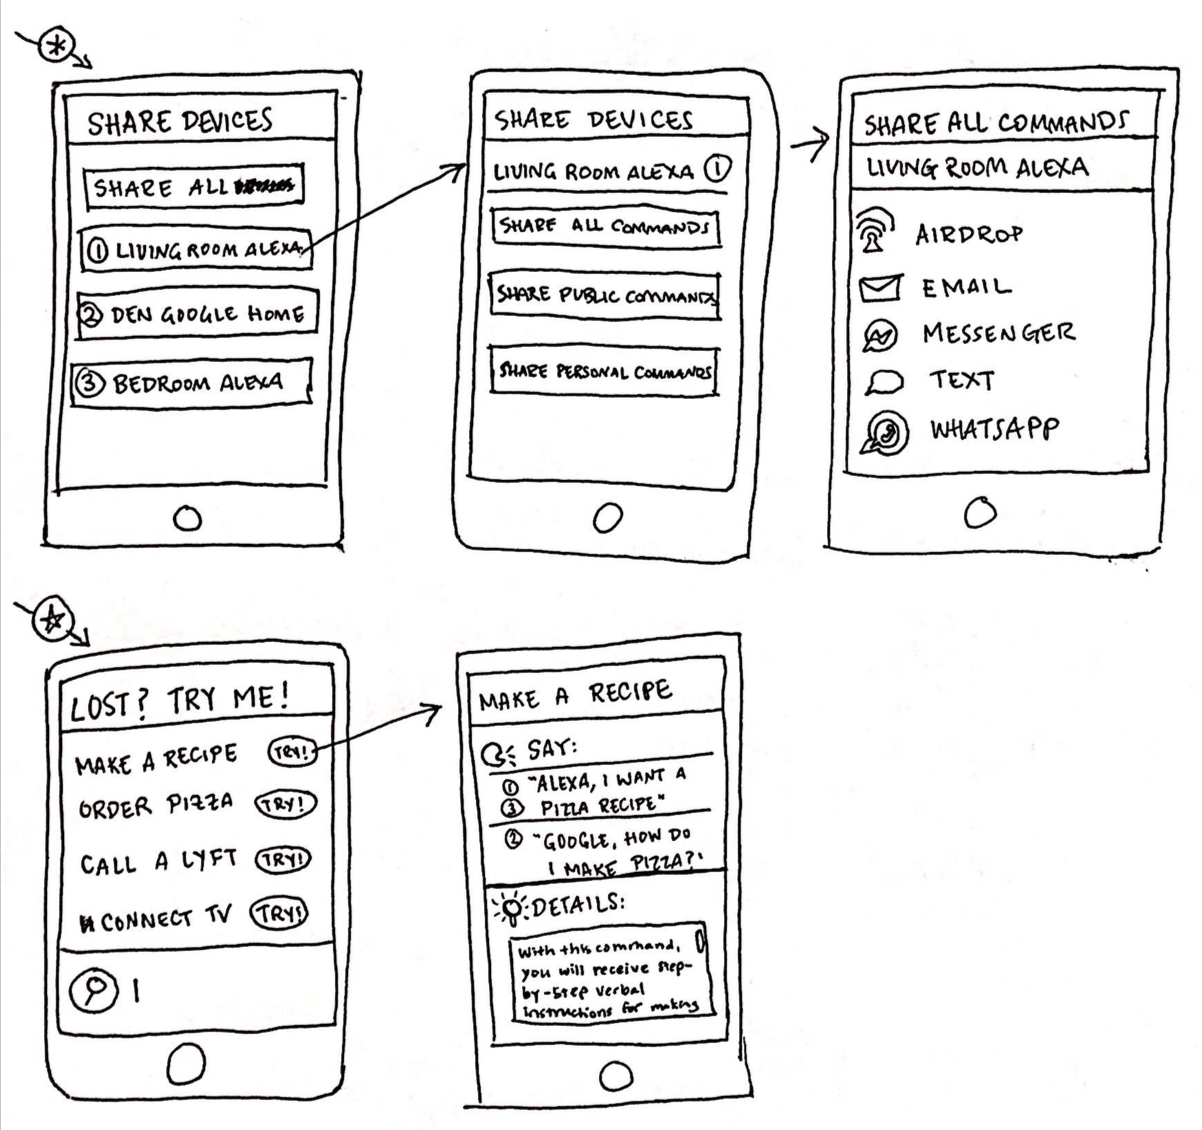 SHARE DEVICES
SHARE ALL
① LIVING ROOM ALEXA
② DEN GOOGLE HOME
③ BEDROOM ALEXA
SHARE DEVICES
LIVING ROOM ALEXA ①
SHARE ALL COMMANDS
SHARE PUBLIC COMMANDS
SHARE PERSONAL COMMANDS
SHARE ALL COMMANDS
LIVING ROOM ALEXA
AIRDROP
EMAIL
MESSENGER
TEXT
WHATSAPP
LOST? TRY ME!
MAKE A RECIPE TRY!
ORDER PIZZA TRY!
CALL A LYFT TRY!
CONNECT TV TRY!
MAKE A RECIPE
SAY:
① "ALEXA, I WANT A
③ PIZZA RECIPE"
② "GOOGLE, HOW DO
I MAKE PIZZA?"
DETAILS:
With this command,
you will receive step-
by-step verbal
instructions for making